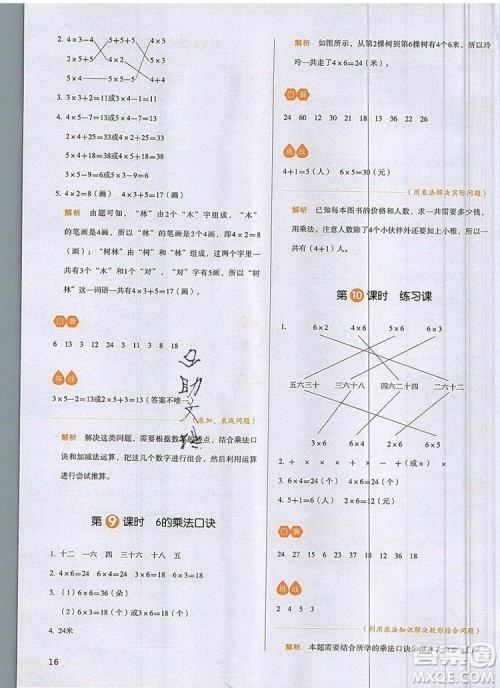 2. 4×3-4 5+5+5 5×4-5
2×4+5 4+4 5×3
5×2+5 5+5+5 4×3+1
3. 4×3-2=10或3×4-2=10
4. 4×5-7=13或5×4-7=13
2×4+5=13或4×2+5=13
3×5-6=9或5×3-6=9
5. 4×2=8(画) 4×3=12(画)
解析 由题可知,“林”由2个“木”字组成,“木”
的笔画是4画,所以“林”的笔画是4×2=8
(画);“树林”由“树”和“林”组成,这两个字共
有3个“木”和1个“对”,“对”是5画,所以“树
林”这一词语一共4×3+5=17(画)。
口算
6 13 12 3 24 9 2 13 18
挑战
3×5-2=13或2×4+5=13(答案不唯一)
解析 解决这类问题,需要根据数的特点,结合乘法口
诀和加减法运算,把这几个数字进行组合,然后利用运算
进行尝试推算。
第9课时 6的乘法口诀
1. 十二 一六 四 三十六 十八 五
2. 4×6=24 2×6=12 3×6=18
3. (1)6×6=36(朵)
(2)3×6=18(个)或6×3=18(个)
4. 24米
16
解析 如图所示,从第2棵树到第6棵树有4个6米,所以玲
玲一共走了4×6=24(米)。
口算
24 60 30 12 10 36 18 22 36
挑战
4+1=5(人) 6×5=30(元)
(用乘法解决实际问题)
解析 已知每本图书的价格和人数,求一共需要多少钱,
用乘法。注意人数除了4个小伙伴外还要加上小雅,所以一
共有(4+1)人。
第10课时 练习课
1. 6×2 4×6 5×6 6×6
五六三十 六六三十六 四六二十四 二六十二
2. - × × + × - × +
3. 6×4=24(个)
4. 5+1=6(个) 6×4=24(个)
口算
24 27 15 6 30 16 18 36 31
挑战
2 4 5 3
(利用乘法知识解决数形结合问题)